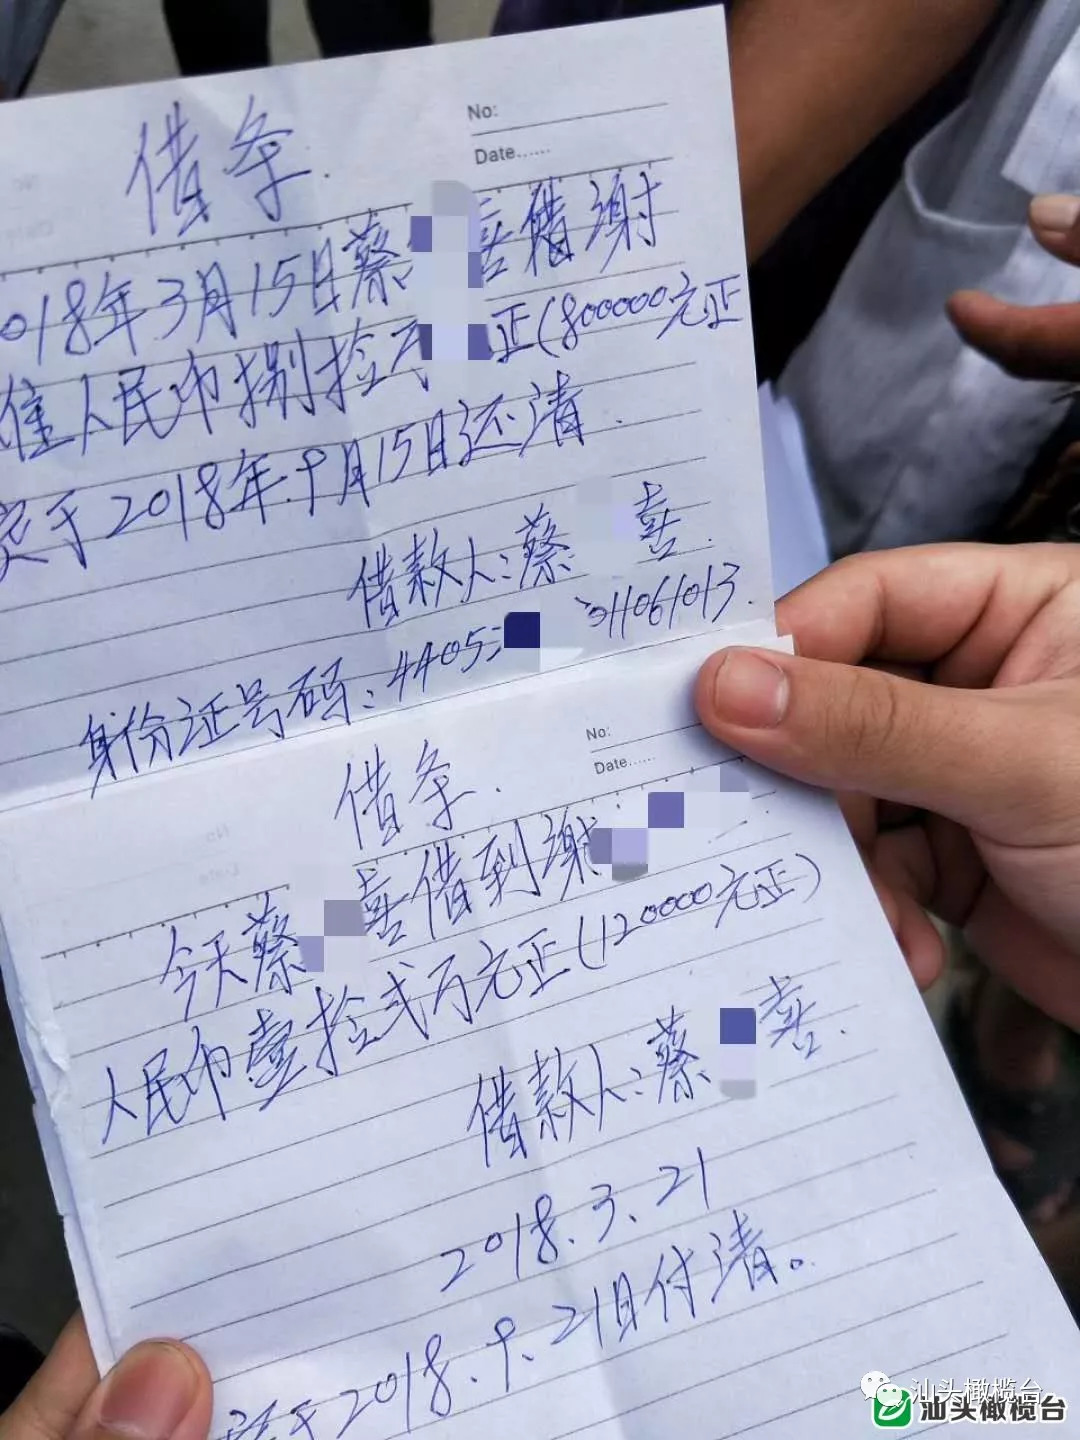 No:
Date......
借条.
018年3月15日蔡 喜借谢
佳人民币捌拾万 正(800000元正
定于2018年.9月15日还清.
借款人:蔡 喜.
身份证号码:4405 011061013.
No:
Date......
借条.
今天蔡 喜借到谢
人民币壹拾贰万元正(120000元正)
借款人:蔡 喜.
2018.3.21
定于2018.9.21日付清。
汕头橄榄台
汕头橄榄台